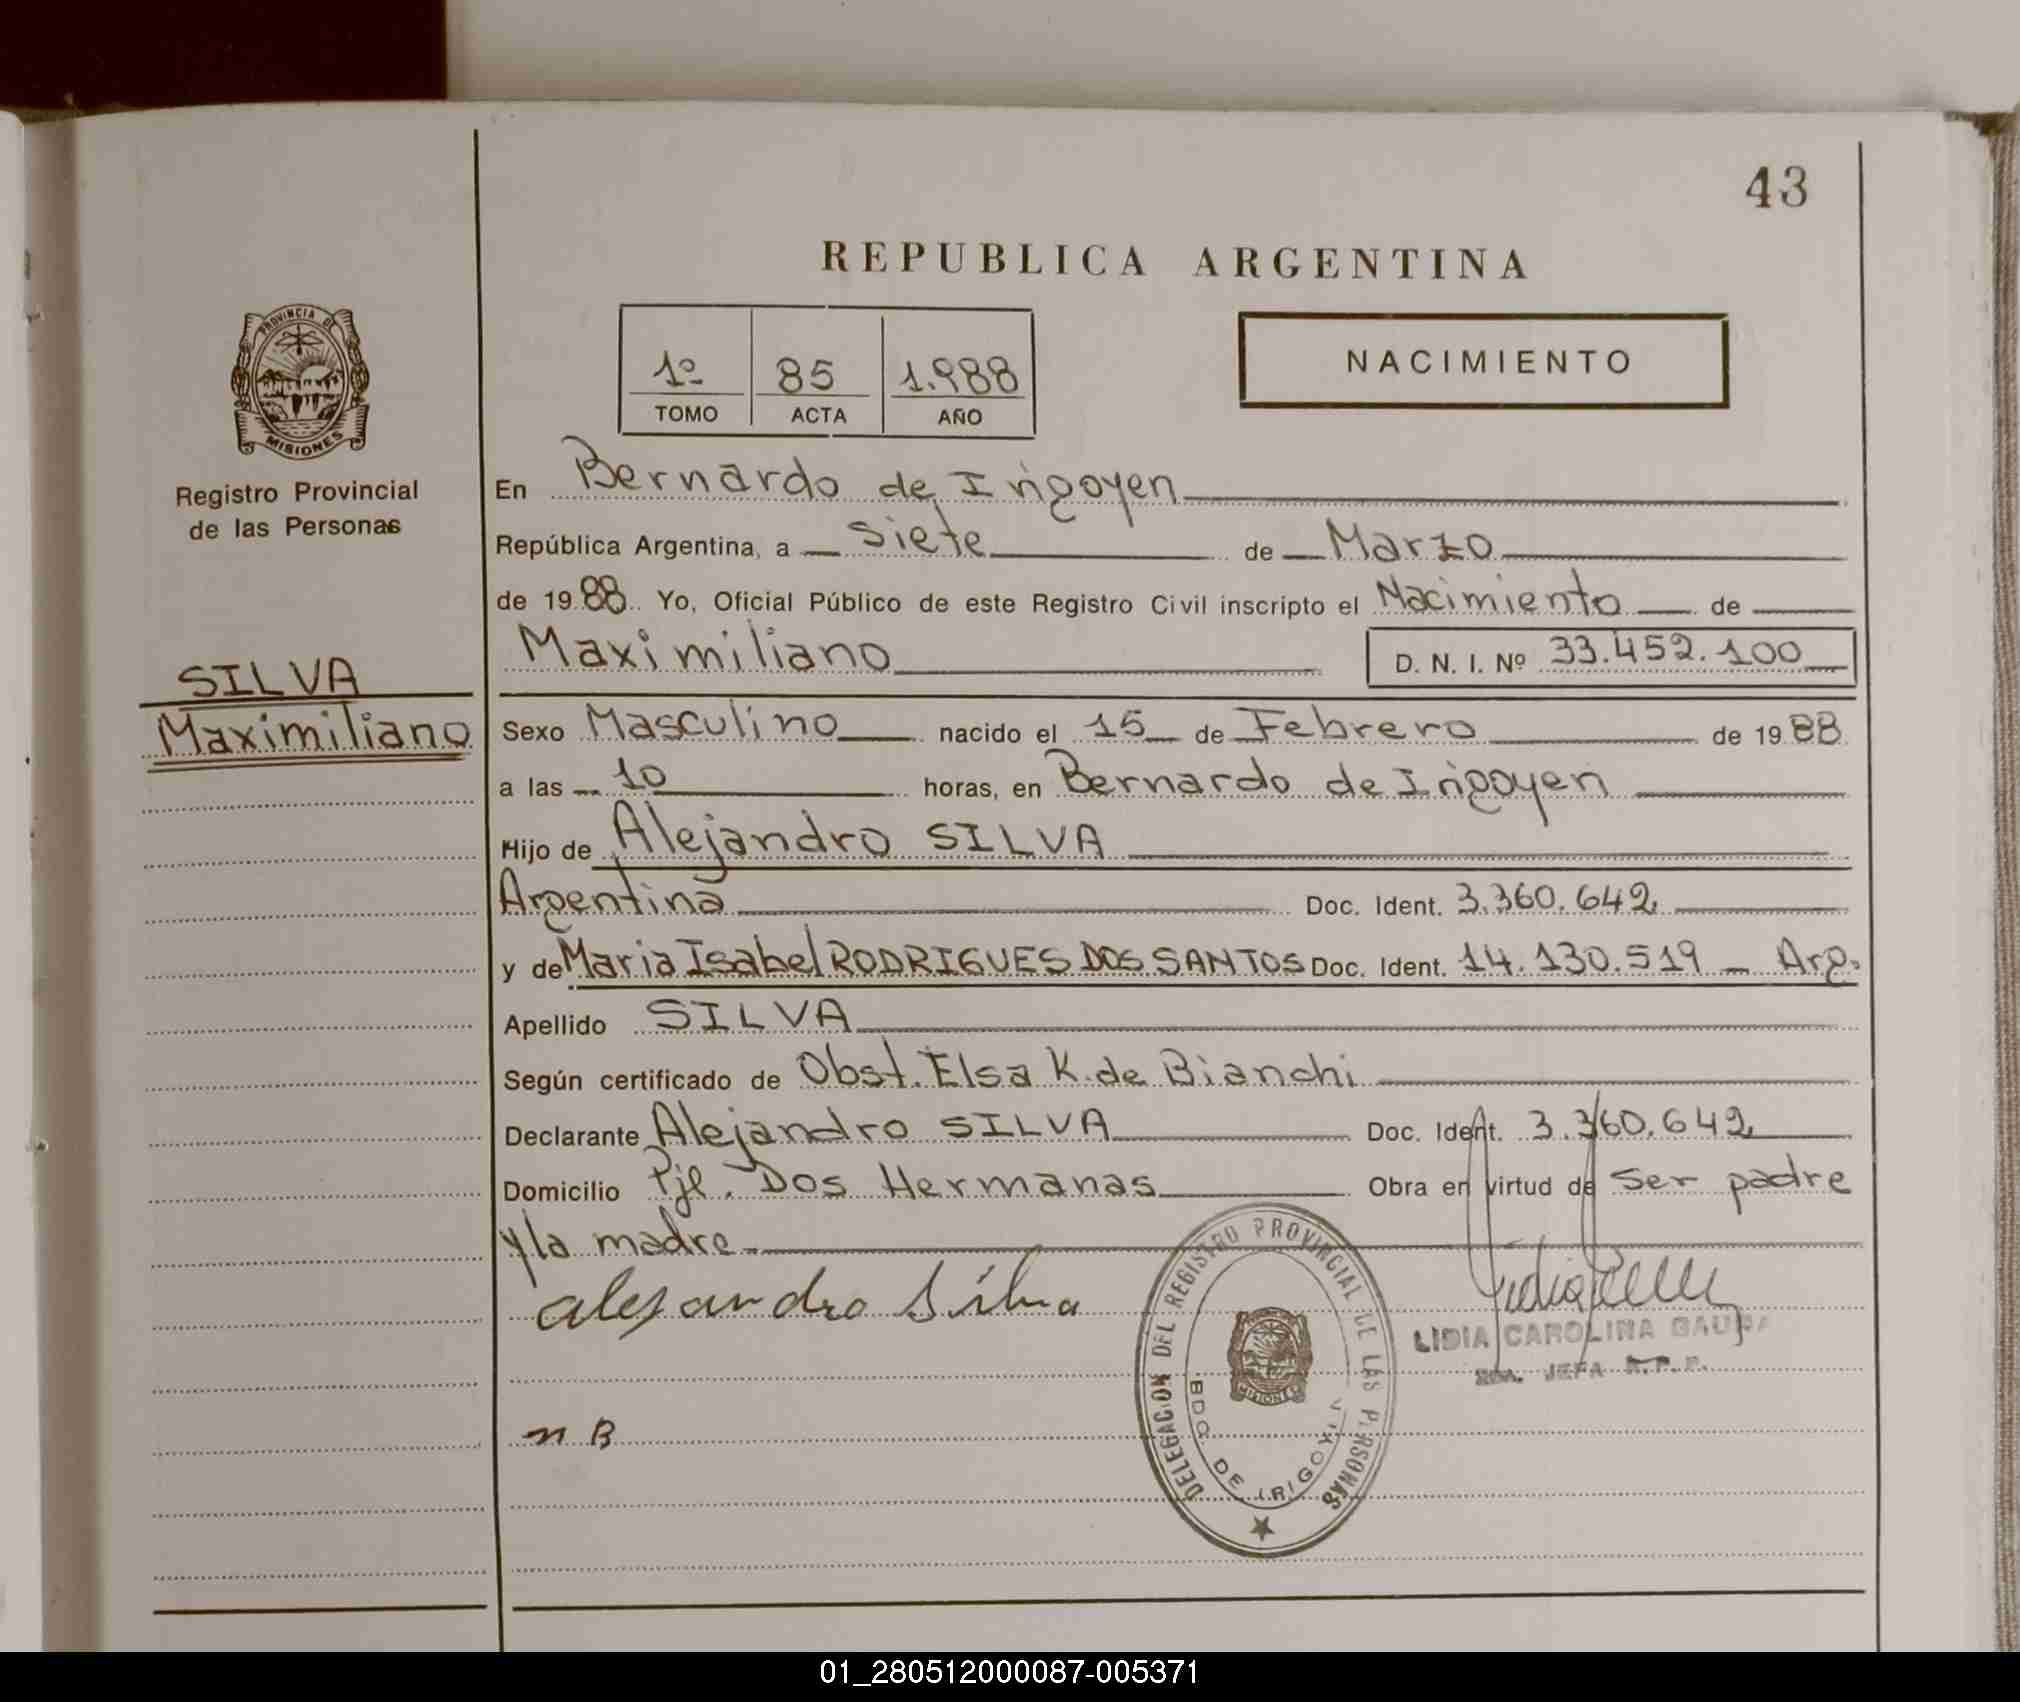 43
REPUBLICA ARGENTINA
PROVINCIA DE
MISIONES
Registro Provincial
de las Personas
1º 85 1.988
TOMO ACTA AÑO
NACIMIENTO
En Bernardo de Irigoyen
República Argentina, a siete de Marzo
de 1988. Yo, Oficial Público de este Registro Civil inscripto el Nacimiento de
Maximiliano D. N. I. Nº 33.452.100
SILVA
Maximiliano
Sexo Masculino nacido el 15 de Febrero de 1988
a las 10 horas, en Bernardo de Irigoyen
Hijo de Alejandro SILVA
Argentina Doc. Ident. 3.360.642
y de Maria Isabel RODRIGUES DOS SANTOS Doc. Ident. 14.130.519 - Arg.
Apellido SILVA
Según certificado de Obst. Elsa K. de Bianchi
Declarante Alejandro SILVA Doc. Ident. 3.360.642
Domicilio Pje. Dos Hermanas Obra en virtud de ser padre
y la madre
alejandro Silva
DELEGACION DEL REGISTRO PROVINCIAL DE LAS PERSONAS
MISIONES
BDO. DE IRIGOYEN
LIDIA CAROLINA GAUNA
JEFA R.P.P.
n B
01_280512000087-005371